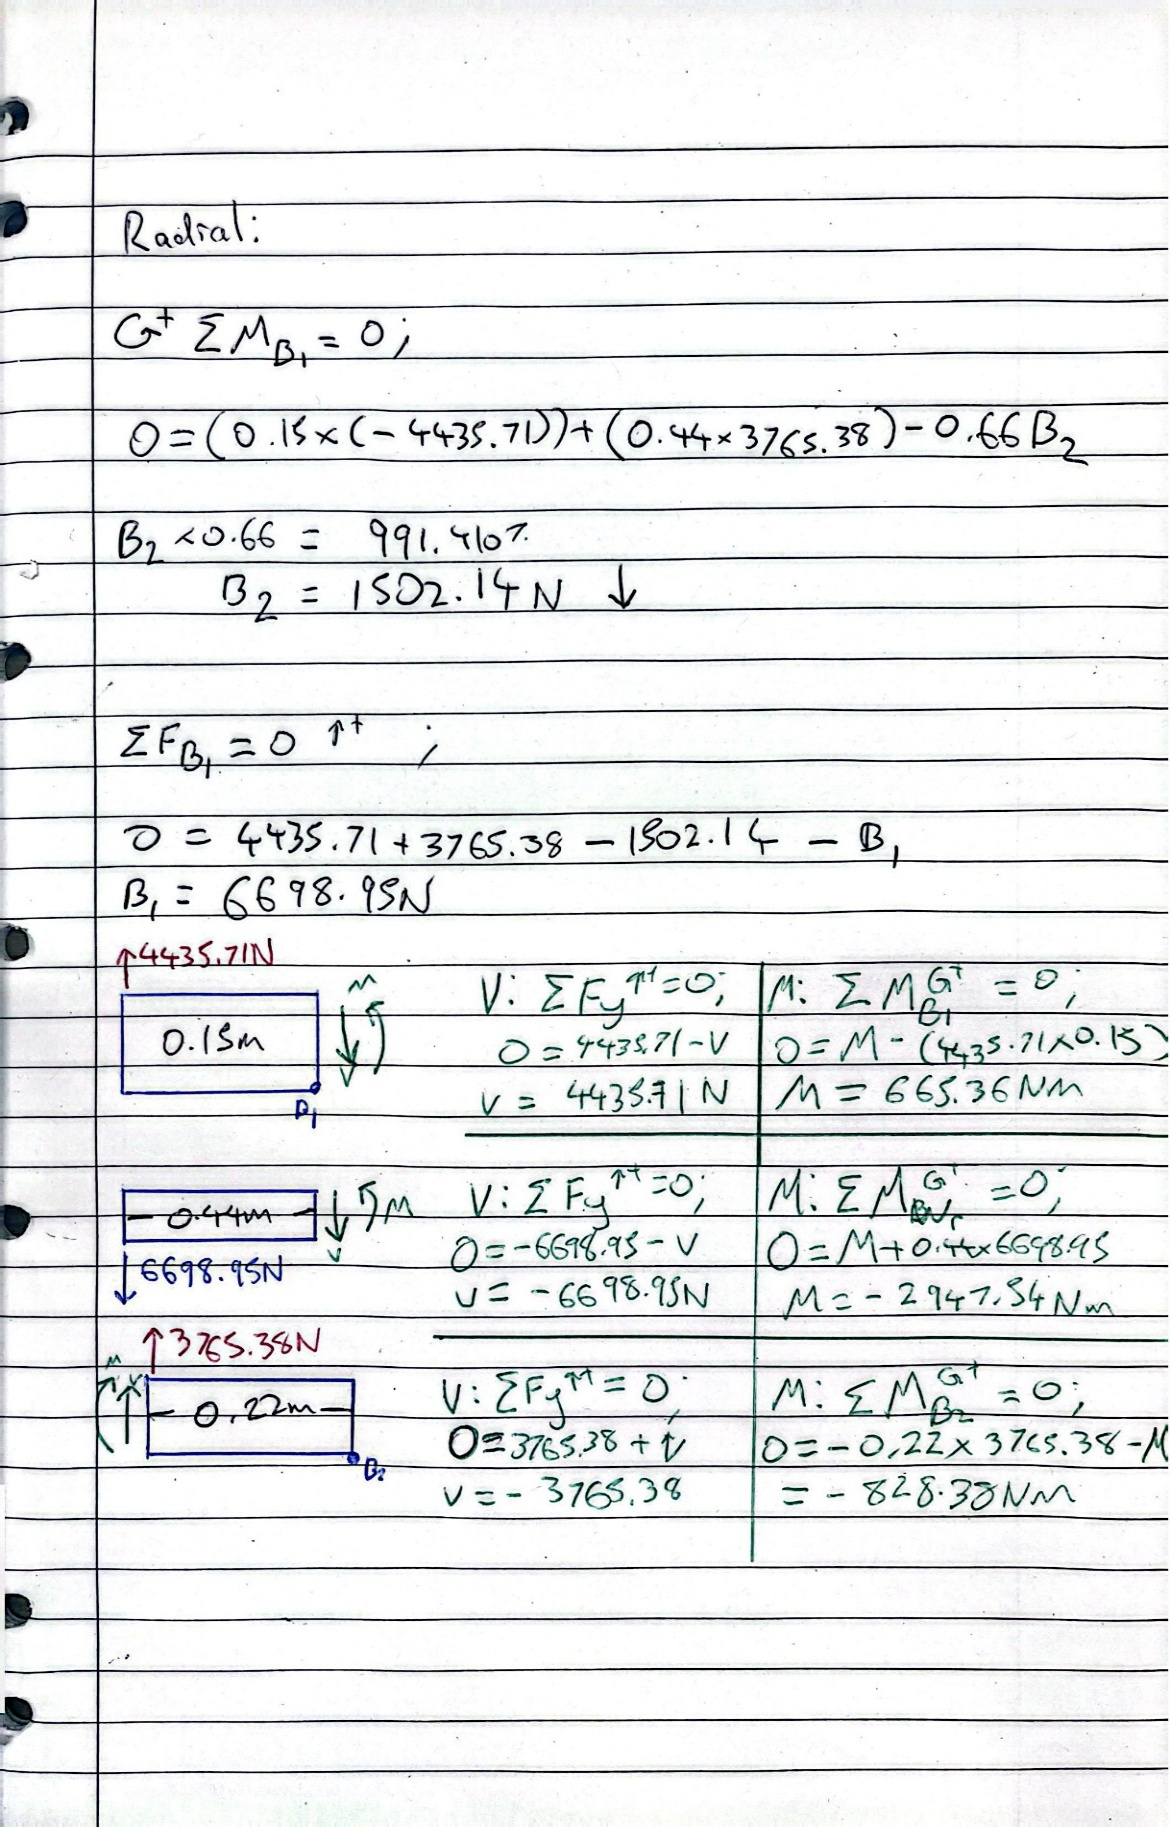 Radial:
↺⁺ ΣM_B₁ = 0;
0 = (0.15×(-4435.71)) + (0.44×3765.38) - 0.66B₂
B₂ × 0.66 = 991.4107
B₂ = 1502.14N ↓
ΣF_B₁ = 0 ↑⁺ ;
0 = 4435.71 + 3765.38 - 1502.14 - B₁
B₁ = 6698.95N
↑4435.71N
0.15m
M
V
B₁
V: ΣFy↑⁺ = 0;
0 = 4435.71 - V
V = 4435.71N
M: ΣM_B₁ ↺⁺ = 0;
0 = M - (4435.71×0.15)
M = 665.36Nm
0.44m
M
V
↓6698.95N
V: ΣFy↑⁺ = 0;
0 = -6698.95 - V
V = -6698.95N
M: ΣM ↺⁺ = 0;
0 = M + 0.44×6698.95
M = -2947.54Nm
↑3765.38N
M
V
0.22m
B₂
V: ΣFy↑⁺ = 0;
0 = 3765.38 + V
V = -3765.38
M: ΣM_B₂ ↺⁺ = 0;
0 = -0.22 × 3765.38 - M
= -828.38Nm